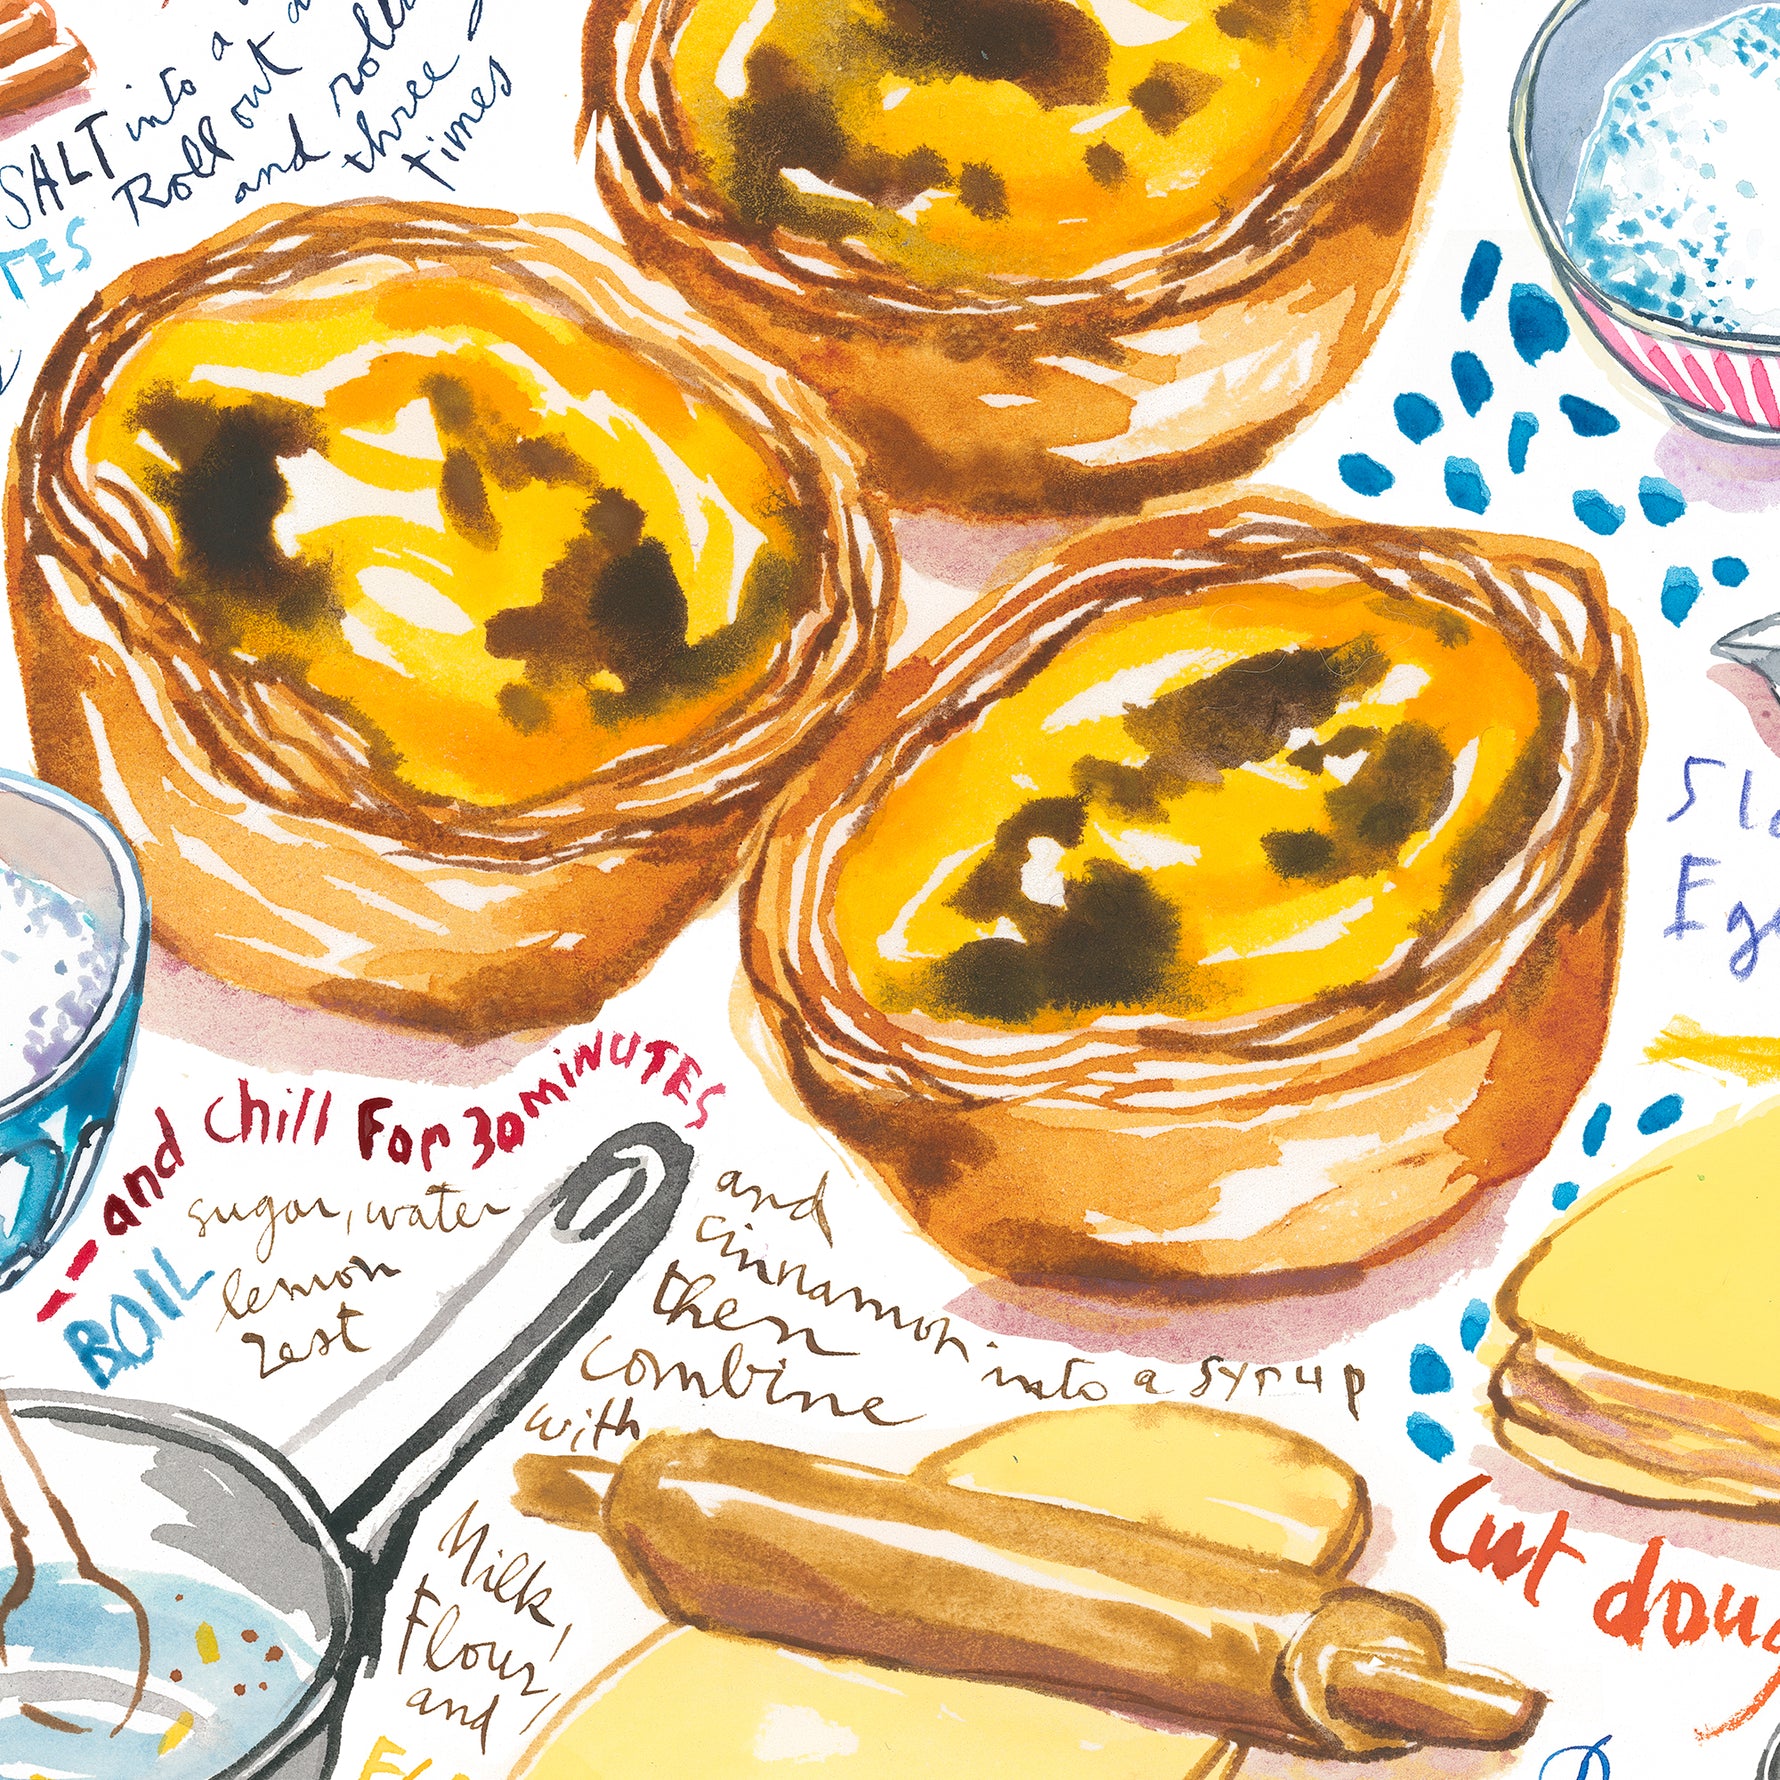 SALT into a
Roll out
and roll
three
times
TES
and chill For 30 minutes
BOIL
sugar, water
lemon
zest
and
cinnamon into a syrup
then
combine
with
Milk,
Flour,
and
Cut doug